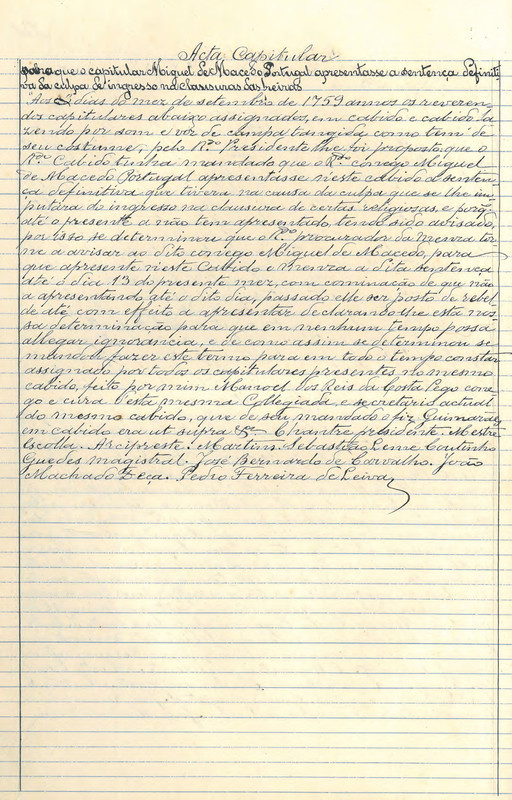 Acta Capitular
para que o capitular Miguel de Macedo Portugal apresentasse a sentença definiti-
va da culpa de ingresso na clausuras das freiras
"Aos 2 dias do mez de setembro de 1759 annos os reveren-
dos capitulares abaixo assignados, em cabido e cabido fa-
zendo por som e voz de campa tangida como tem de
seu costume, pelo R.do Presidente lhe foi proposto que o
R.mo Cabido tinha mandado que o R.do conego Miguel
de Macedo Portugal apresentasse n'este cabido a senten-
ça definitiva que tivera na causa da culpa que se lhe im-
putára do ingresso na clausura de certas religiosas, e porq.
até o presente a não tem apresentado, tendo sido avisado,
por isso se determinou que o R.do procurador da Meuza tor-
ne a avisar ao dito conego Miguel de Macedo, para
que apresente n'este Cabido e Meuza a dita sentença
até o dia 13 do presente mez, com cominação de que não
a apresentando até o dito dia, passado elle ser posto de rebel-
de até com effeito a apresentar declarando-lhe esta nos-
sa determinação para que em nenhum tempo possa
allegar ignorancia, e de como assim se determinou se
mandou fazer este termo para em todo o tempo constar
assignado por todos os capitulares presentes no mesmo
cabido, feito por mim Manoel dos Reis da Costa Pego cone-
go e cura n'esta mesma Collegiada, e secretario actual
do mesmo cabido, que de seu mandado o fiz, Guimarães
em cabido era ut supra &.a Chantre presidente. Mestre
Escola. Arcipreste. Martim Sebastião Leme Coutinho
Guedes magistral. José Bernardo de Carvalho. João
Machado Deça. Pedro Ferreira de Leiva